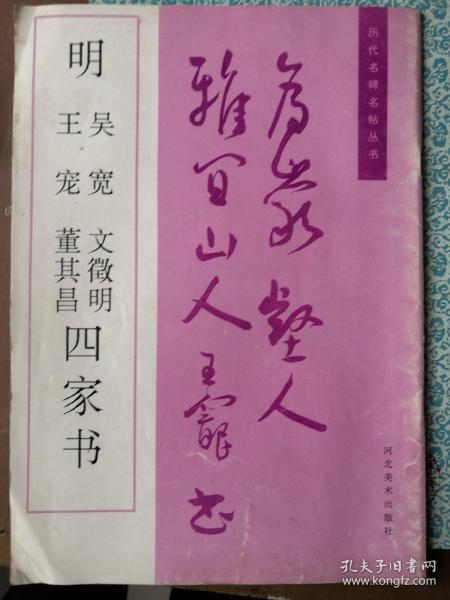 历代名碑名帖丛书
雅宜山人王寵书
河北美术出版社
明
吴宽 文徵明
王宠 董其昌
四家书
孔夫子旧书网
www.kongfz.com